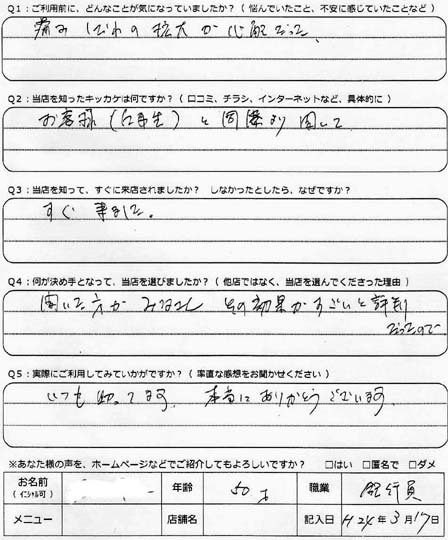 Q1：ご利用前に、どんなことが気になっていましたか？（悩んでいたこと、不安に感じていたことなど）
痛み しびれの拡大が心配だった、
Q2：当店を知ったキッカケは何ですか？（口コミ、チラシ、インターネットなど、具体的に）
お客様（ 先生）と 同僚より 聞いて
Q3：当店を知って、すぐに来店されましたか？ しなかったとしたら、なぜですか？
すぐ 来ました。
Q4：何が決め手となって、当店を選びましたか？（他店ではなく、当店を選んでくださった理由）
聞いた方が その効果がすごいと評判
だったので
Q5：実際にご利用してみていかがですか？（率直な感想をお聞かせください）
いつも 助ってます。本当にありがとうございます。
※あなた様の声を、ホームページなどでご紹介してもよろしいですか？ □はい □匿名で □ダメ
お名前 年齢 50才 職業 銀行員
（イニシャル可）
メニュー 店舗名 記入日 H24年3月17日